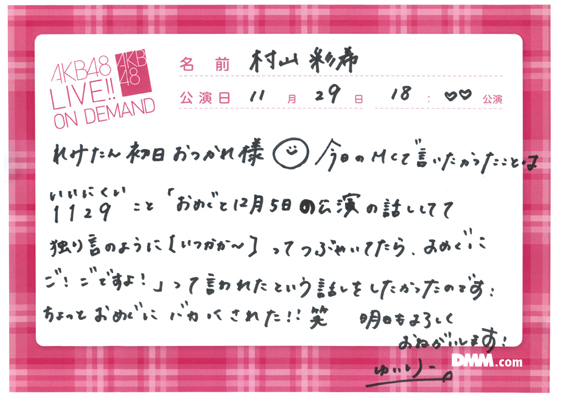 AKB48
LIVE!!
ON DEMAND
AKB
48
名前 村山彩希
公演日 11月29日 18:♡♡公演
れけたん初日おつかれ様 今日のMCで言いたかったことは
いいにくい
1129 こと「おめぐと12月5日の公演の話ししてて
独り言のように【いつかか〜】ってつぶやいてたら、おめぐに
ご!ごですよ!」って言われたという話しをしたかったのです!
ちょっとおめぐにバカにされた!!笑 明日もよろしく
おねがいします!
ゆいりー
DMM.com